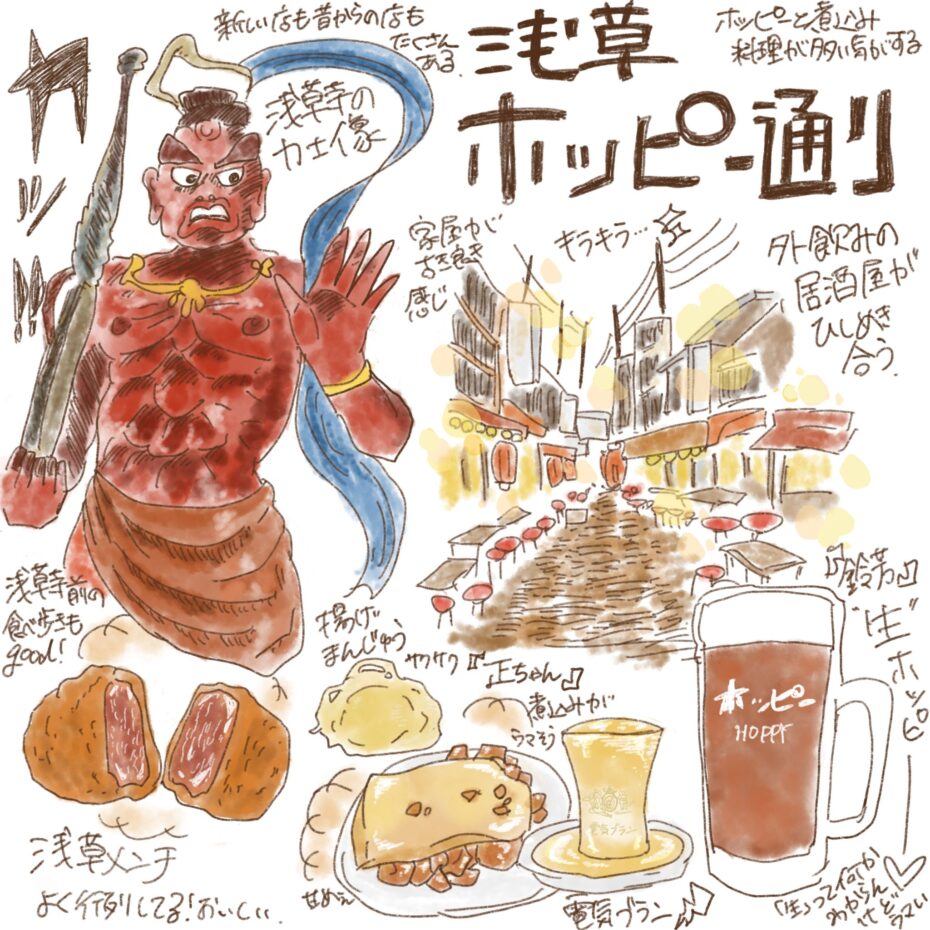 新しい店も昔からの店も
たくさん
ある.
浅草
ホッピー通り
ホッピーと煮込み
料理が多い気がする
ガッ!!
浅草寺の
力士像
家屋が
古き良き
感じ
キラキラ…
外飲みの
居酒屋が
ひしめき
合う.
浅草寺前の
食べ歩きも
good!
揚げ
まんじゅう
サクサク
『正ちゃん』
煮込みが
うまそう
『鈴芳』
"生"ホッピー
ホッピー
HOPPY
浅草メンチ
よく行列してる!おいしい.
甘めぇ
電気ブラン
電気ブラン
「生」って何か
わからん
けど
ウマい